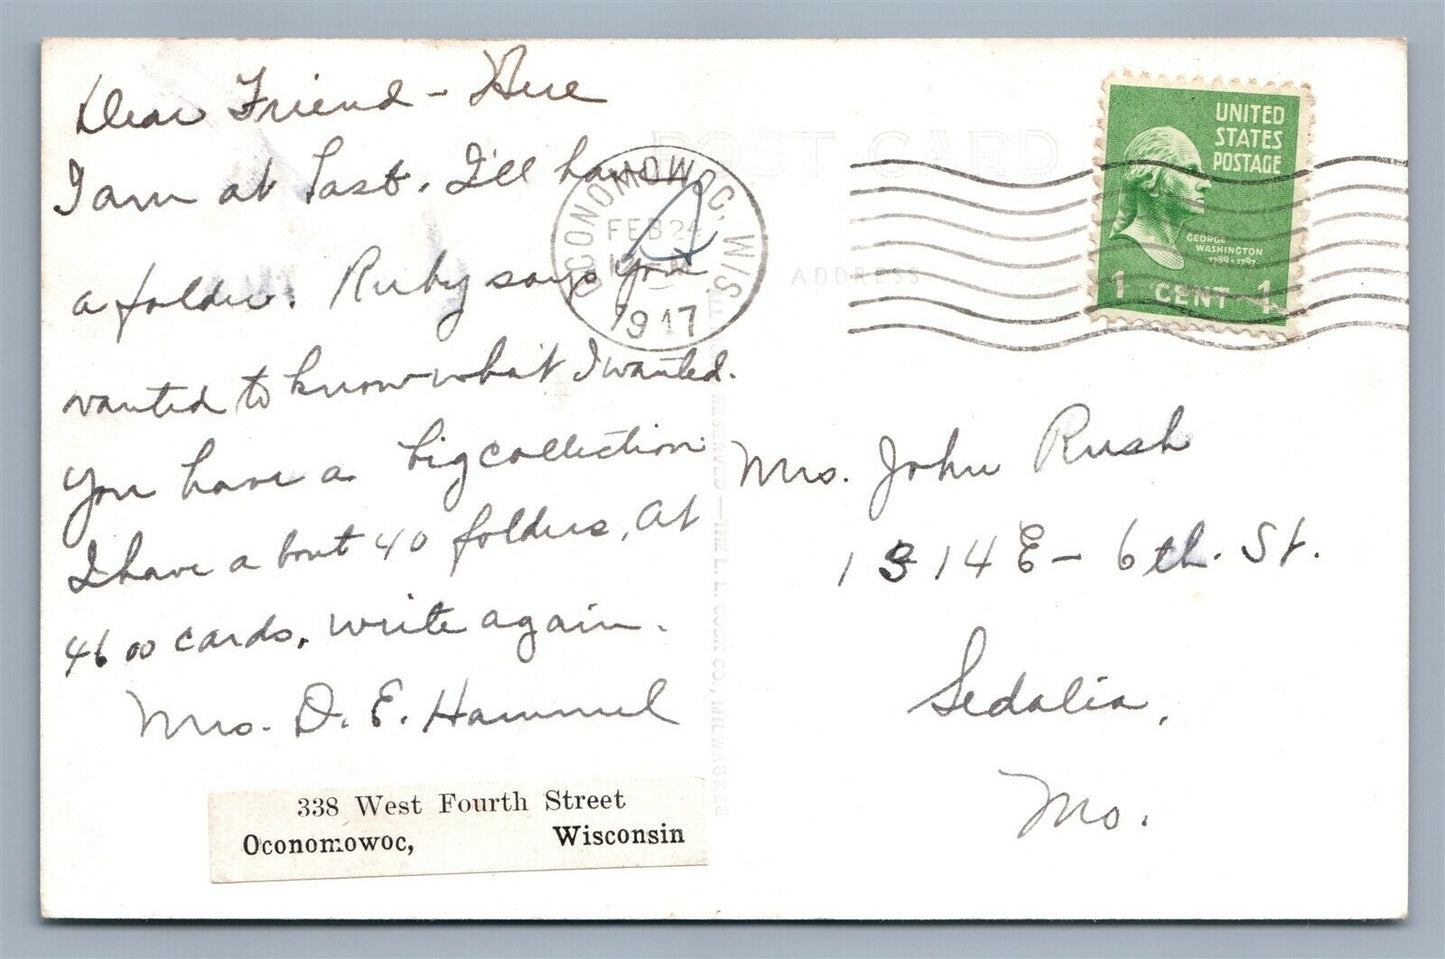 Dear Friend - Here
I am at last. I'll have
a folder. Ruby says you
wanted to know what I wanted.
You have a big collection
I have about 40 folders, at
4600 cards. write again.
Mrs. D. E. Hammel
338 West Fourth Street
Oconomowoc, Wisconsin
POST CARD
ADDRESS
OCONOMOWOC, WIS.
FEB 24
1947
UNITED
STATES
POSTAGE
GEORGE
WASHINGTON
1789-1797
1 CENT 1
Mrs. John Rush
1314 E - 6th. St.
Sedalia,
Mo.
RESERVED - THE L. L. COOK CO., MILWAUKEE